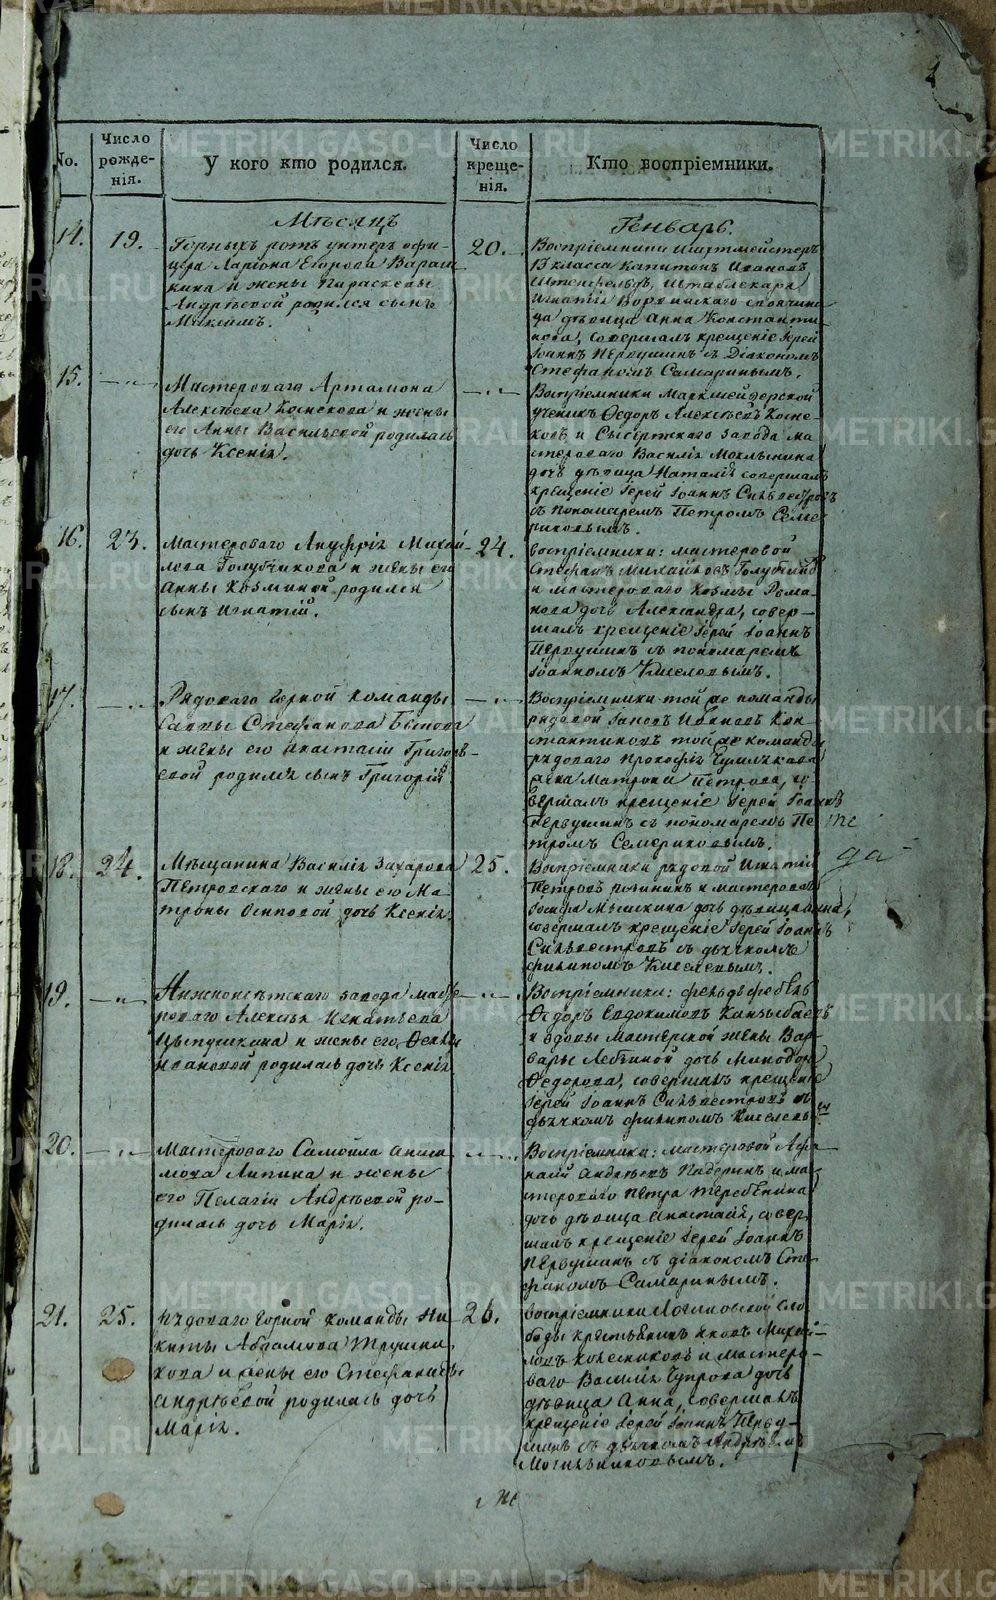 No.
Число рожде-нія.
У кого кто родился.
Число креще-нія.
Кто воспріемники.
Мѣсяцъ
Генварь.
14.
19.
Горныхъ ротъ унтеръ офи-
цера Ларіона Егорова
и жены его Параскевы
Андрѣевой родился сынъ
Максимъ.
20.
Воспріемники Шихтмейстеръ
13 класса Капитонъ Ивановъ
Игнатія
ца дѣвица Анна Константи-
нова, совершалъ крещеніе Іерей
Іоаннъ Первушинъ съ Діакономъ
Стефаномъ Самаринымъ.
15.
Мастероваго Артамона
Алексѣева Коснекова и жены
его Анны Васильевой родилась
дочь Ксенія.
Воспріемники Маркшейдерской
ученикъ Ѳедоръ Алексѣевъ Косне-
ковъ и Сысертскаго завода ма-
стероваго Василія
дочь дѣвица Наталія совершалъ
крещеніе Іерей Іоаннъ Сильвестровъ
съ пономаремъ Петромъ Семе-
риковымъ.
16.
23.
Мастероваго Ануфрія Михай-
лова Голубчикова и жены его
Анны Козминой родился
сынъ Игнатій.
24.
Воспріемники: мастеровой
Стефанъ Михайловъ
и мастероваго Козмы Рома-
нова дочь Александра, совер-
шалъ крещеніе Іерей Іоаннъ
Первушинъ съ пономаремъ
Іоанномъ Киселовымъ.
17.
Рядоваго горной команды
Саввы Стефанова Бытова
и жены его Анастасіи Григорь-
евой родился сынъ Григорій
Воспріемники той же команды
рядовой Ивановъ Кон-
стантиновъ той же команды
рядоваго Прокофія Чумлякова
жена Матрона Петрова, со-
вершалъ крещеніе Іерей Іоаннъ
Первушинъ съ пономаремъ Пе-
тромъ Семериковымъ.
18.
24.
Мѣщанина Василія Захарова
Петровскаго и жены его Ма-
троны Осиповой дочь Ксенія.
25.
Воспріемники рядовой Игнатій
Петровъ и мастероваго
Іосифа Мышкина дочь дѣвица Анна,
совершалъ крещеніе Іерей Іоаннъ
Сильвестровъ съ дьячкомъ
Филипомъ Киселевымъ.
да
19.
Нижнеисетскаго завода масте-
роваго Алексѣя Игнатьева
и жены его
Ивановой родилась дочь Ксенія
Воспріемники: фельдфебель
Ѳедоръ Евдокимовъ
и вдовы мастерской жены Вар-
вары дочь Минодора
Ѳедорова, совершалъ крещеніе
Іерей Іоаннъ Сильвестровъ съ
дьячкомъ Филипомъ Киселевымъ
20.
Мастероваго Самойла
Липина и жены
его Пелагіи Андрѣевой ро-
дилась дочь Марія.
Воспріемники: мастеровой Афа-
насій Андрѣевъ и ма-
стероваго Петра Теребенина
дочь дѣвица Анастасія, совер-
шалъ крещеніе Іерей Іоаннъ
Первушинъ съ діакономъ Сте-
фаномъ Самаринымъ.
21.
25.
Рядоваго горной команды Ни-
киты Абрамова Трушни-
кова и жены его Стефаниды
Андрѣевой родилась дочь
Марія.
26.
Воспріемники Логиновской сло-
боды крестьянинъ Яковъ Михай-
ловъ Колесниковъ и мастеро-
ваго Василія Чупрова дочь
дѣвица Анна, совершалъ
крещеніе Іерей Іоаннъ Перву-
шинъ съ дьячкомъ Андрѣемъ
Могильниковымъ.
METRIKI.GASO-URAL.RU